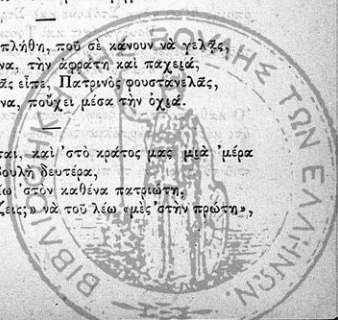 πλήθη, ποῦ σὲ κάνουν νὰ γελᾷς,
να, τὴν ἀφράτη καὶ παχειά.
ᾶς εἶπε, Πατρινὸς φουστανελᾶς,
να, ποὔχει μέσα τὴν ὀχιά.
ται, καὶ 'στὸ κράτος μας μιὰ 'μέρα
βουλὴ δευτέρα,
ω 'στὸν καθένα πατριώτη,
ζεις;» νὰ τοῦ λέω «μὲς 'στὴν πρώτη»,
ΒΙΒΛΙΟΘΗΚΗ ΤΗΣ ΒΟΥΛΗΣ ΤΩΝ ΕΛΛΗΝΩΝ.